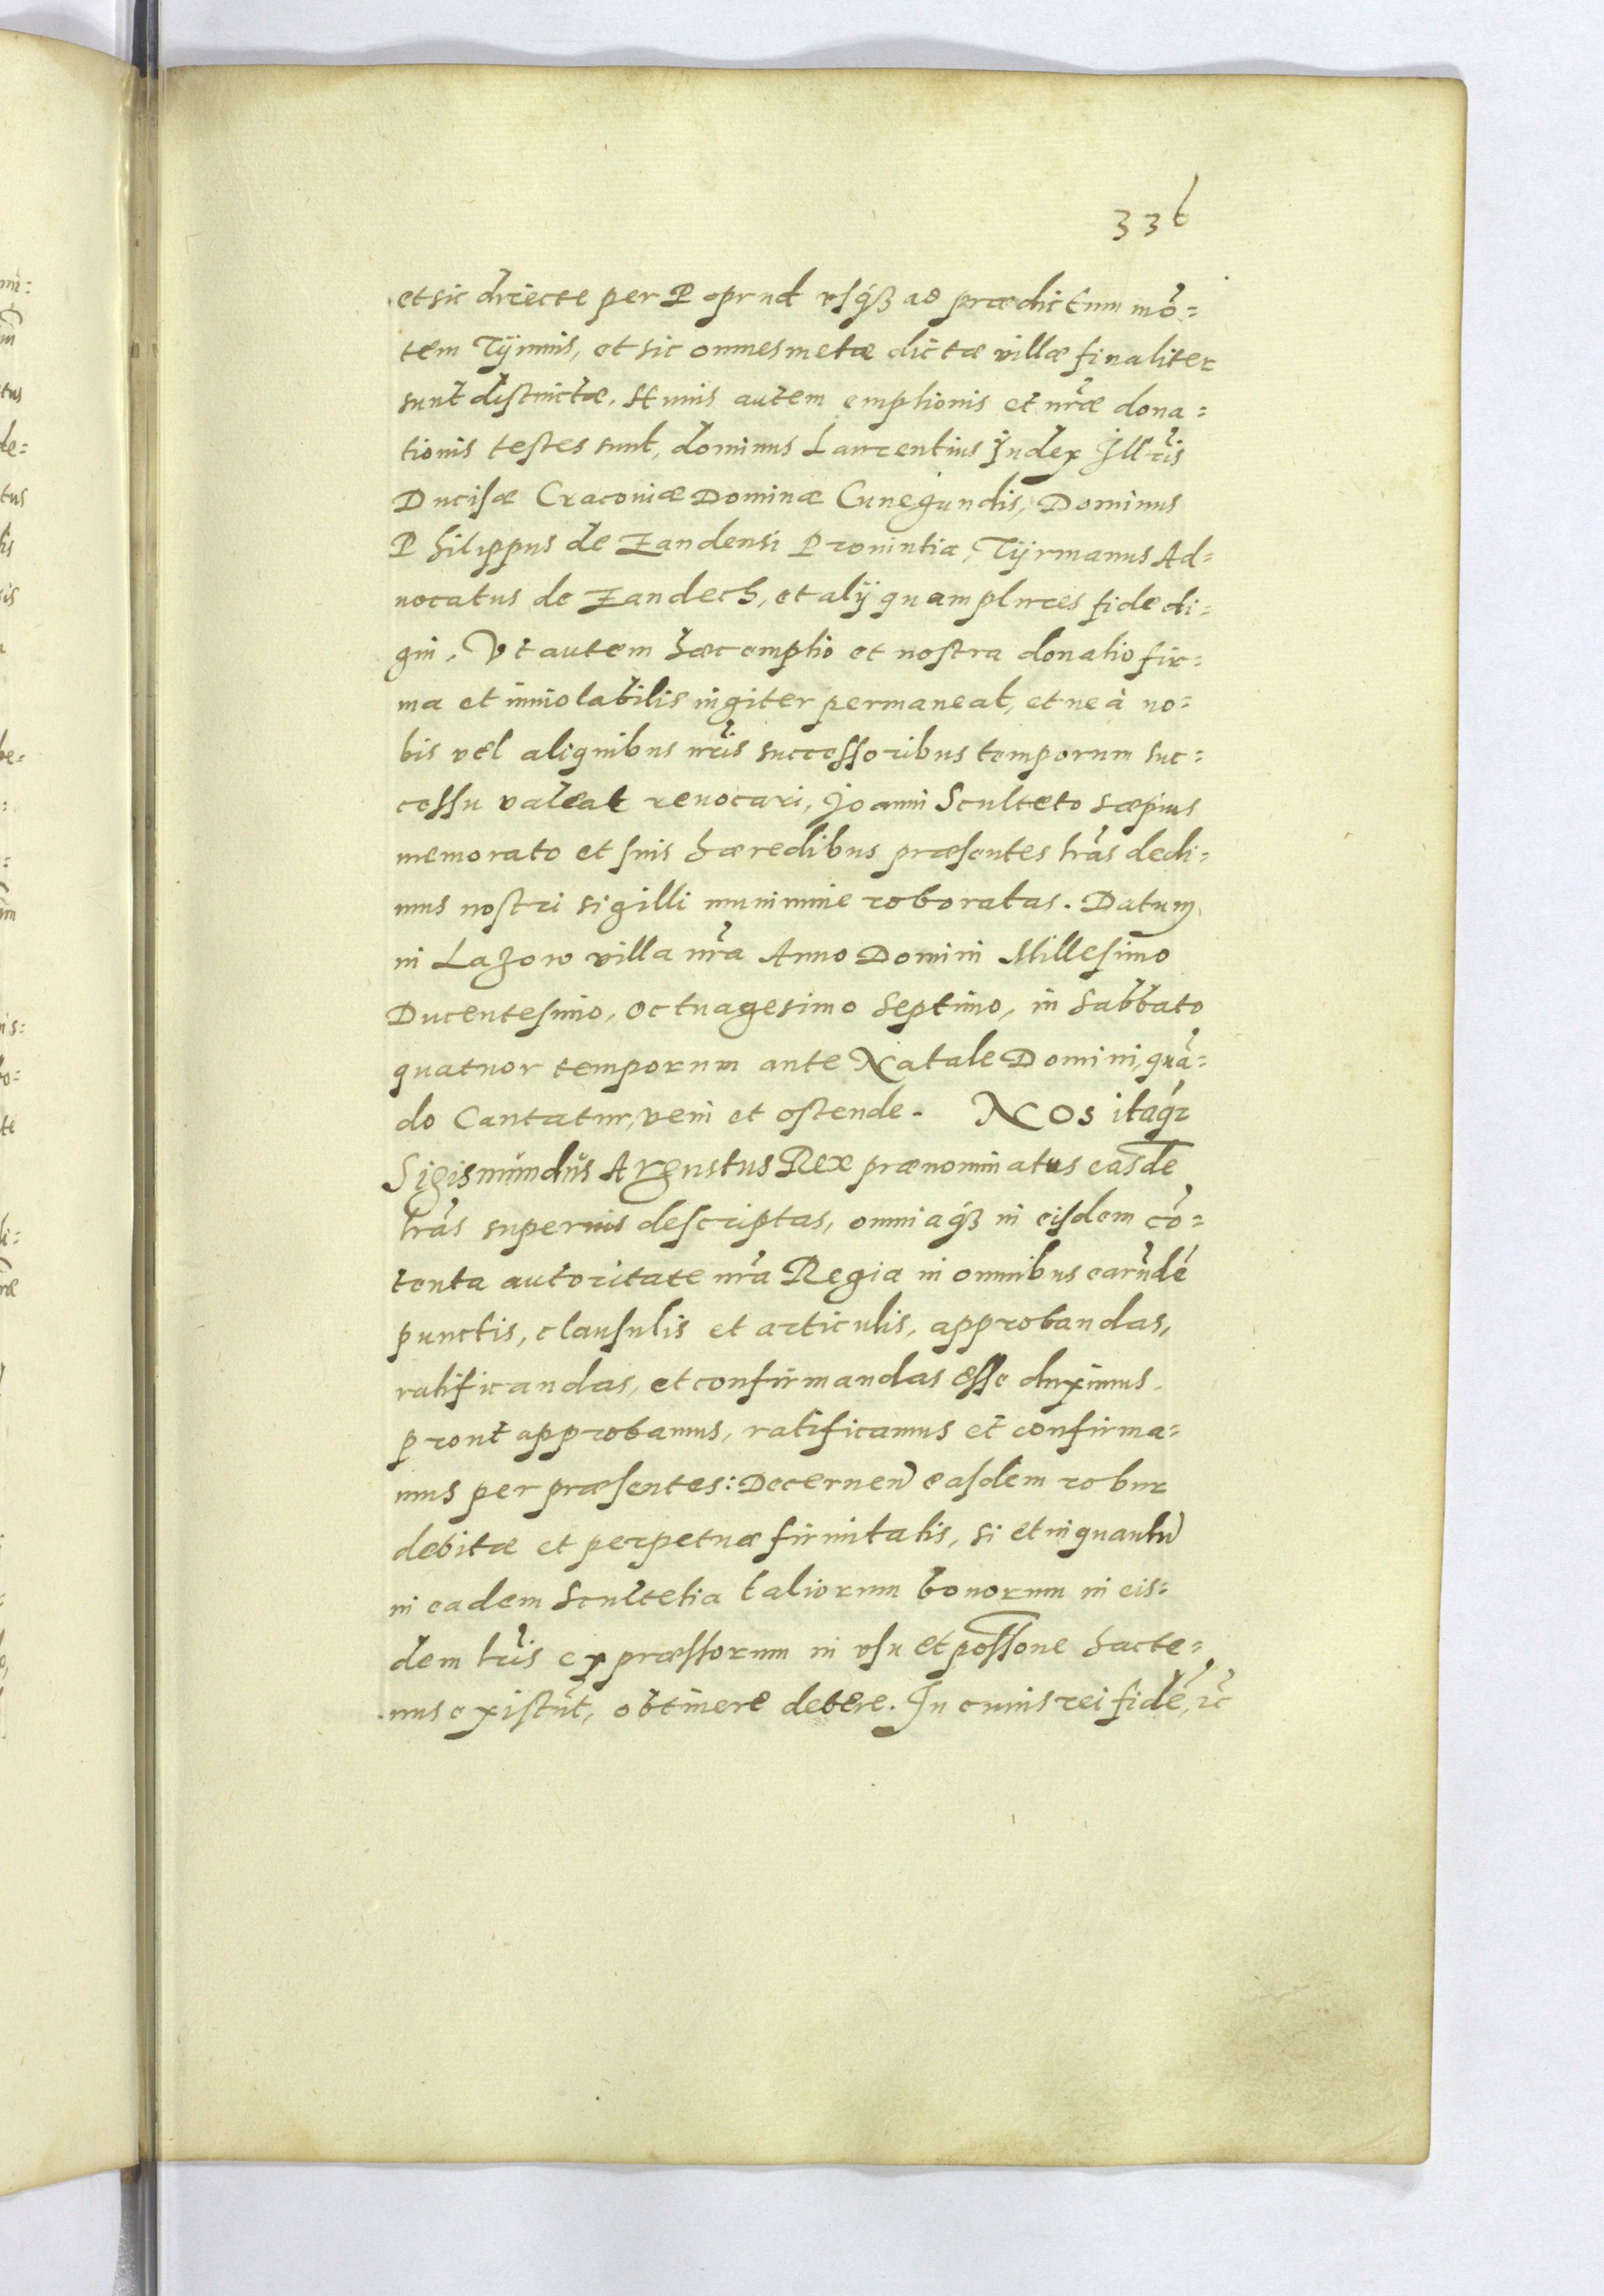 336
et sic directe per Poprud vsq́ꝫ ad prædictum mõ=
tem Tÿmnis, et sic omnes metæ dictæ villæ finaliter
sunt distinctæ. Huius autem emptionis et nr̃æ dona=
tionis testes sunt, dominus Laurentius Judex Ill̃ris
Ducisæ Cracouiæ Dominæ Cunegundis, Dominus
Philippus de Zandensi Prouintia, Tÿrmanus Ad=
uocatus de Zandech, et alÿ quamplures fide di=
gni. Vt autem hæc emptio et nostra donatio fir=
ma et inuiolabilis iugiter permaneat, et ne à no=
bis vel aliquibus nr̃is successoribus temporum suc=
cessu valeat reuocari, Joanni Sculteto sæpius
memorato et suis hæredibus præsentes lr̃as dedi=
mus nostri sigilli munimine roboratas. Datum
in Lazow villa nr̃a Anno Domini Millesimo
Ducentesimo, octuagesimo septimo, in Sabbato
quatuor temporum ante Natale Domini, quã=
do Cantatur, veni et ostende. NOS itaq́ꝫ
Sigismundus Augustus Rex prænominatus easdẽ
lr̃as superius descriptas, omniaq́ꝫ in eisdem cõ=
tenta autoritate nr̃a Regia in omnibus earũdẽ
punctis, clausulis et articulis, approbandas,
ratificandas, et confirmandas esse duximus.
prout approbamus, ratificamus et confirma=
mus per præsentes: Decernen̄ easdem robur
debitæ et perpetuæ firmitatis, si et inquantũ
in eadem Scultetia taliorum bonorum in eis=
dem lr̃is expræssorum in vsu et posso̅ne hacte=
nus existũt, obtinere debere. In cuius rei fidẽ, ꝛc̃